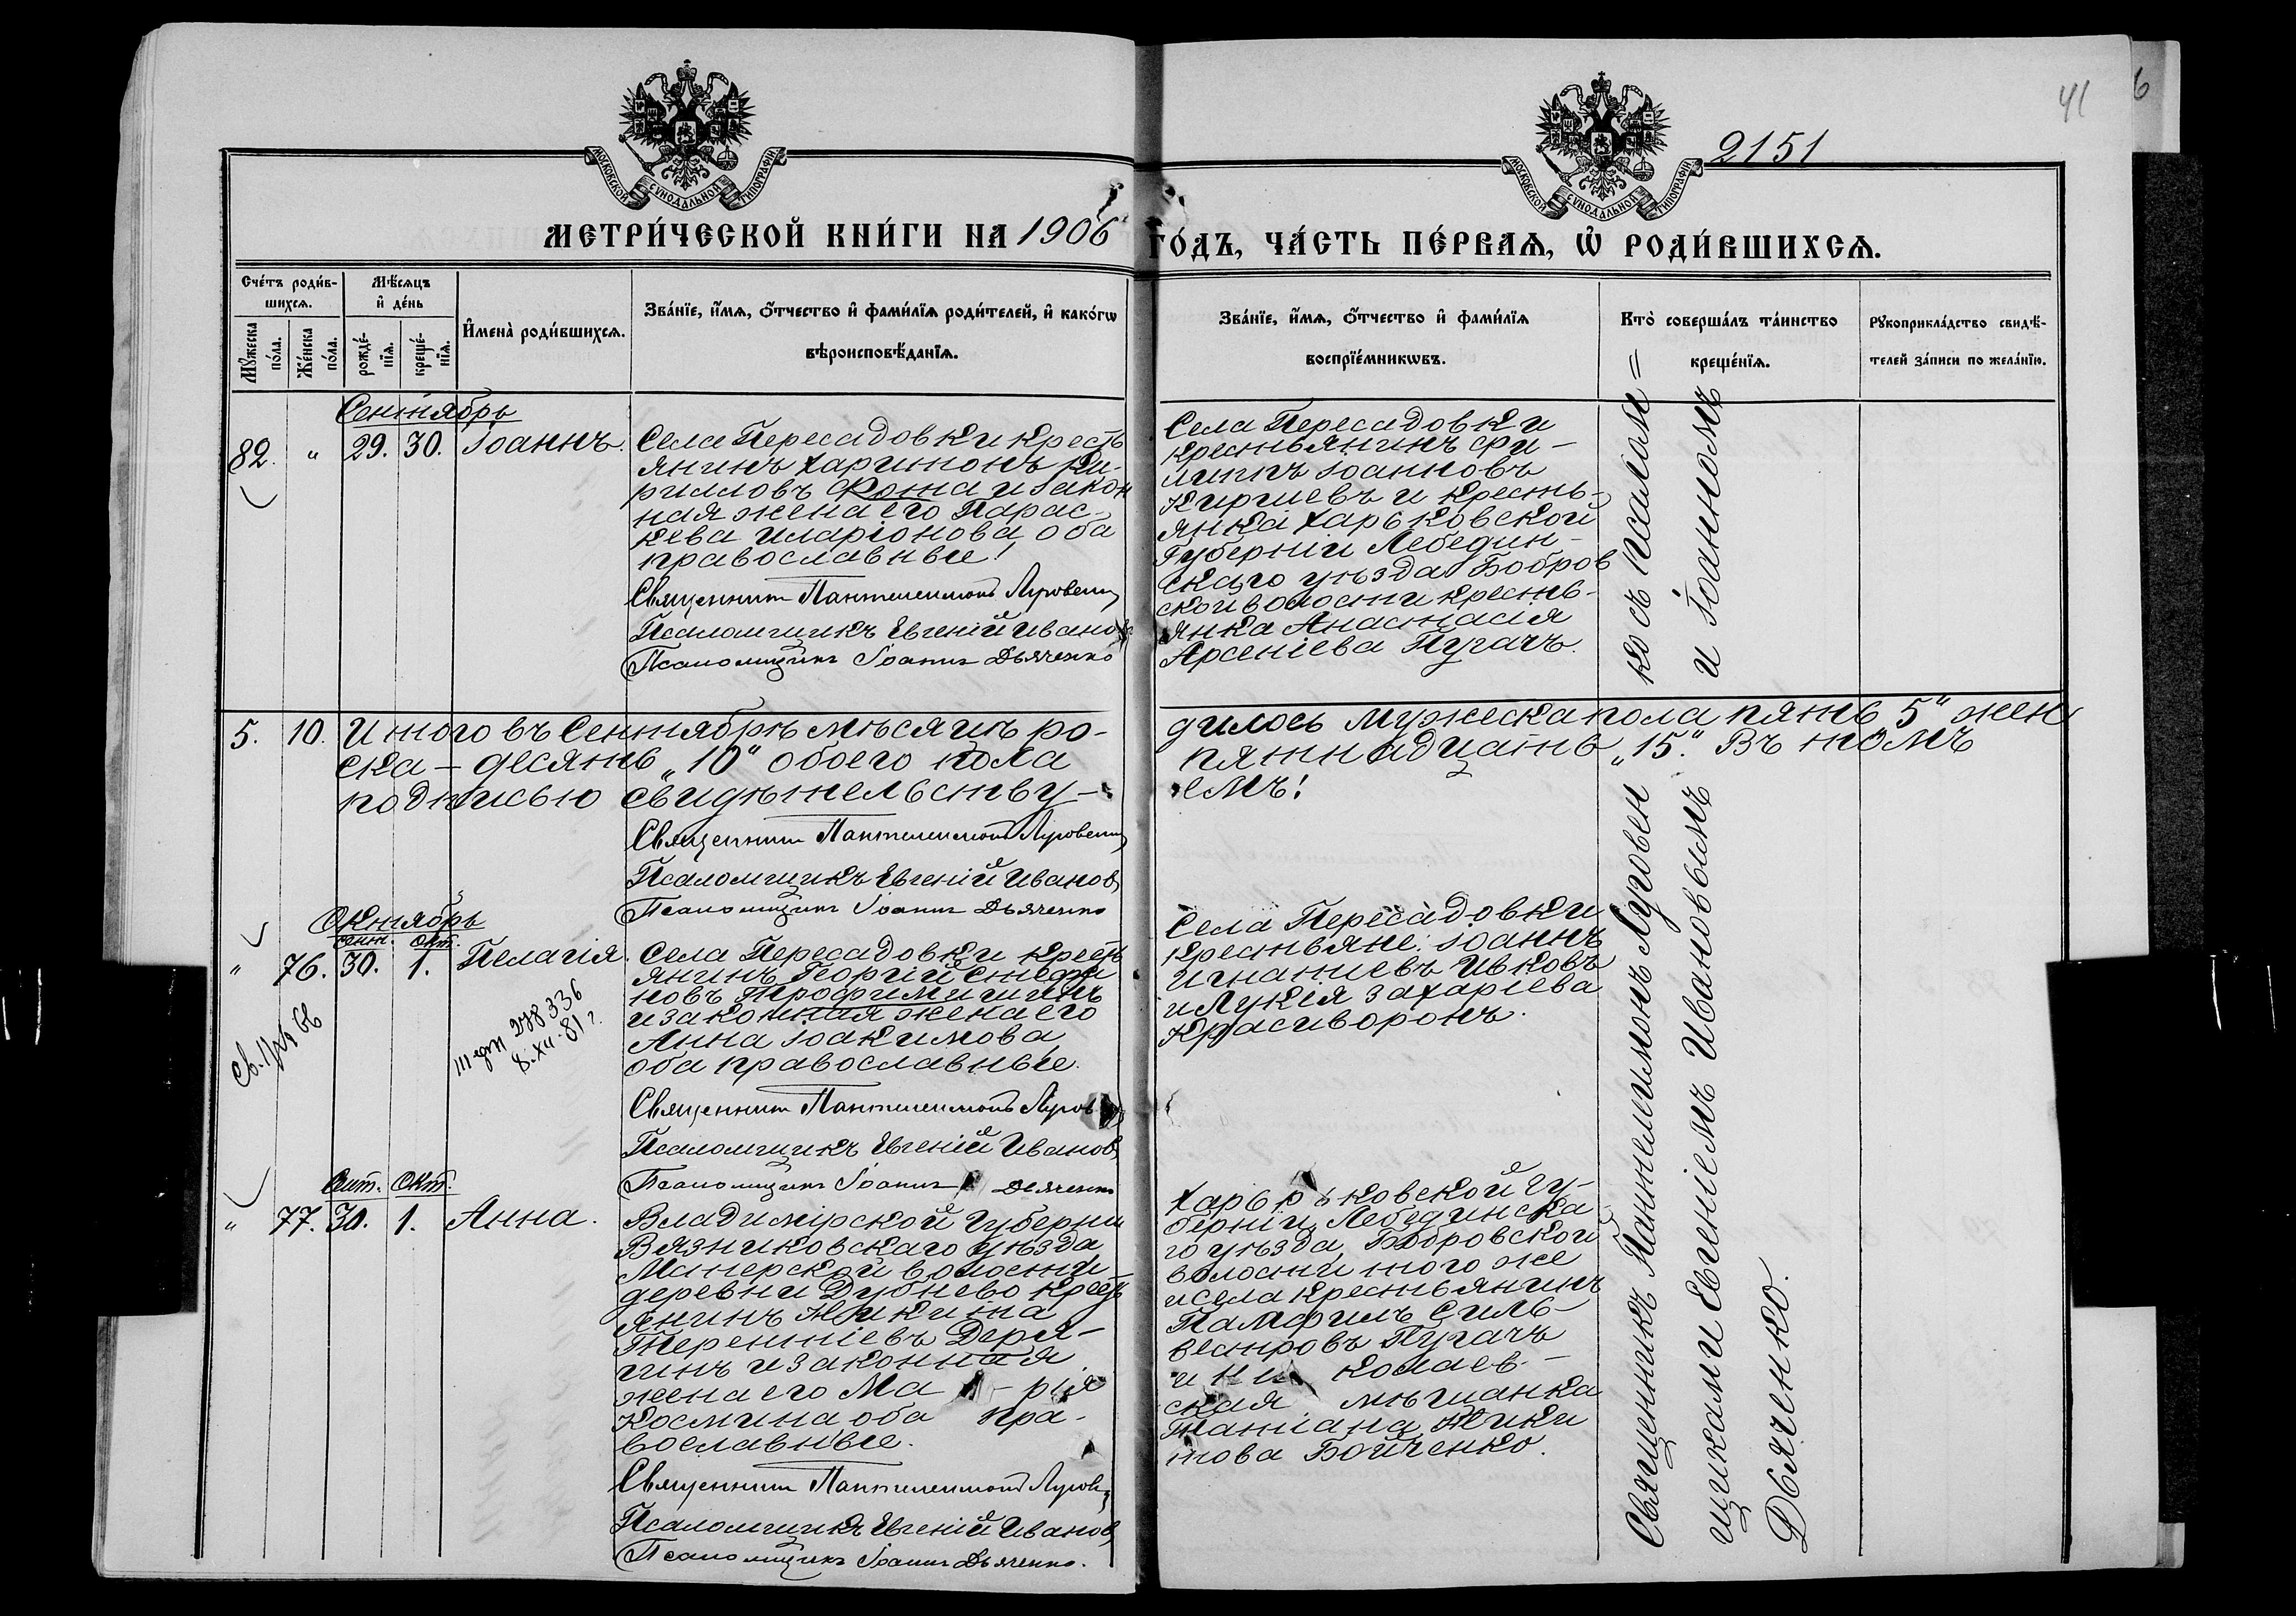 41
6
2151
МОСКОВСКОЙ СѴНОДАЛЬНОЙ ТИПОГРАФІИ
МОСКОВСКОЙ СѴНОДАЛЬНОЙ ТИПОГРАФІИ
МЕТРИ́ЧЕСКОЙ КНИ́ГИ НА 1906 ГО́ДЪ, ЧА́СТЬ ПЕ́РВАЯ, Ѡ҆ РОДИ́ВШИХСЯ.
Сче́тъ роди́в-
шихся.
Мꙋ́жеска
по́ла.
Же́нска
по́ла.
Мѣ́сяцъ
и҆ де́нь
рожде́-
нїѧ.
креще́-
нїѧ.
И҆мена̀ роди́вшихся.
Зва́нїе, и҆́мѧ, ѻ҆́тчество и҆ фами́лїѧ роди́телей, и҆ како́гѡ
вѣроисповѣ́данїѧ.
Зва́нїе, и҆́мѧ, ѻ҆́тчество и҆ фами́лїѧ
воспрїе́мникѡвъ.
Кто̀ соверша́лъ та́инство
креще́нїѧ.
Рꙋкоприкла́дство свидѣ́-
телей за́писи по жела́нїю.
Сентябрь
82. " 29. 30. Іоаннъ.
Села Пересадовки кресть
янинъ Харитонъ Ки-
рилловъ Фома и закон
ная жена его Парас-
кева Иларіонова, оба
православные!
Священникъ Пантелеимонъ
Псаломщикъ Евгеній Ивановъ
Псаломщикъ Іоаннъ Дьяченко
Села Пересадовки
крестьянинъ Фи-
липпъ Іоанновъ
Киргіевъ и кресть-
янка Харьковской
Губерніи Лебедин-
скаго уѣзда Бобров
ской волости кресть-
янка Анастасія
Арсеніева Пугачъ.
5. 10. Итого въ Сентябрѣ мѣсяцѣ ро-
дилось мужеска пола пять 5" жен
ска - десять "10" обоего пола
пятнадцать "15." Въ томъ
подписью свидѣтельству-
емъ!
Священникъ Пантелеимонъ
Псаломщикъ Евгеній Ивановъ
Псаломщикъ Іоаннъ Дьяченко
Октябрь
сент. окт.
" 76. 30. 1. Пелагія.
278336
8.XII.81 г.
Села Пересадовки кресть
янинъ Георгій
новъ Трофимишинъ
и законная жена его
Анна Іоакимова,
оба православные.
Священникъ Пантелеимонъ
Псаломщикъ Евгеній Ивановъ
Псаломщикъ Іоаннъ Дьяченко
Села Пересадовки
крестьяне: Іоаннъ
Игнатиевъ Ивковъ
и Лукія Захаріева
Красиворонъ.
Сент. Окт.
" 77. 30. 1. Анна.
Владимірской Губерніи
Вязниковскаго уѣзда
Мстерской волости
деревни Дубнево кресть
янинъ Никита
Терентіевъ Деря-
гинъ и законная
жена его Ма - рія
Космина оба пра-
вославные.
Священникъ Пантелеимонъ
Псаломщикъ Евгеній Ивановъ
Псаломщикъ Іоаннъ Дьяченко.
Харь ковской Гу-
берніи, Лебединска
го уѣзда, Бобровской
волости того же
и села крестьянинъ
Памфилъ Силь-
вестровъ Пугачъ
и Ни колаев-
ская мѣщанка
Татіана Ники
това Бойченко.
Священникъ Пантелеимонъ Луговен
ко съ Псалом=
щиками Евгеніемъ Ивановымъ
и Іоанномъ
Дьяченко.